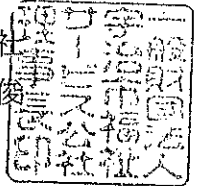 一般財団法人
宇治市福祉
サービス公社
理事長印
社
俊